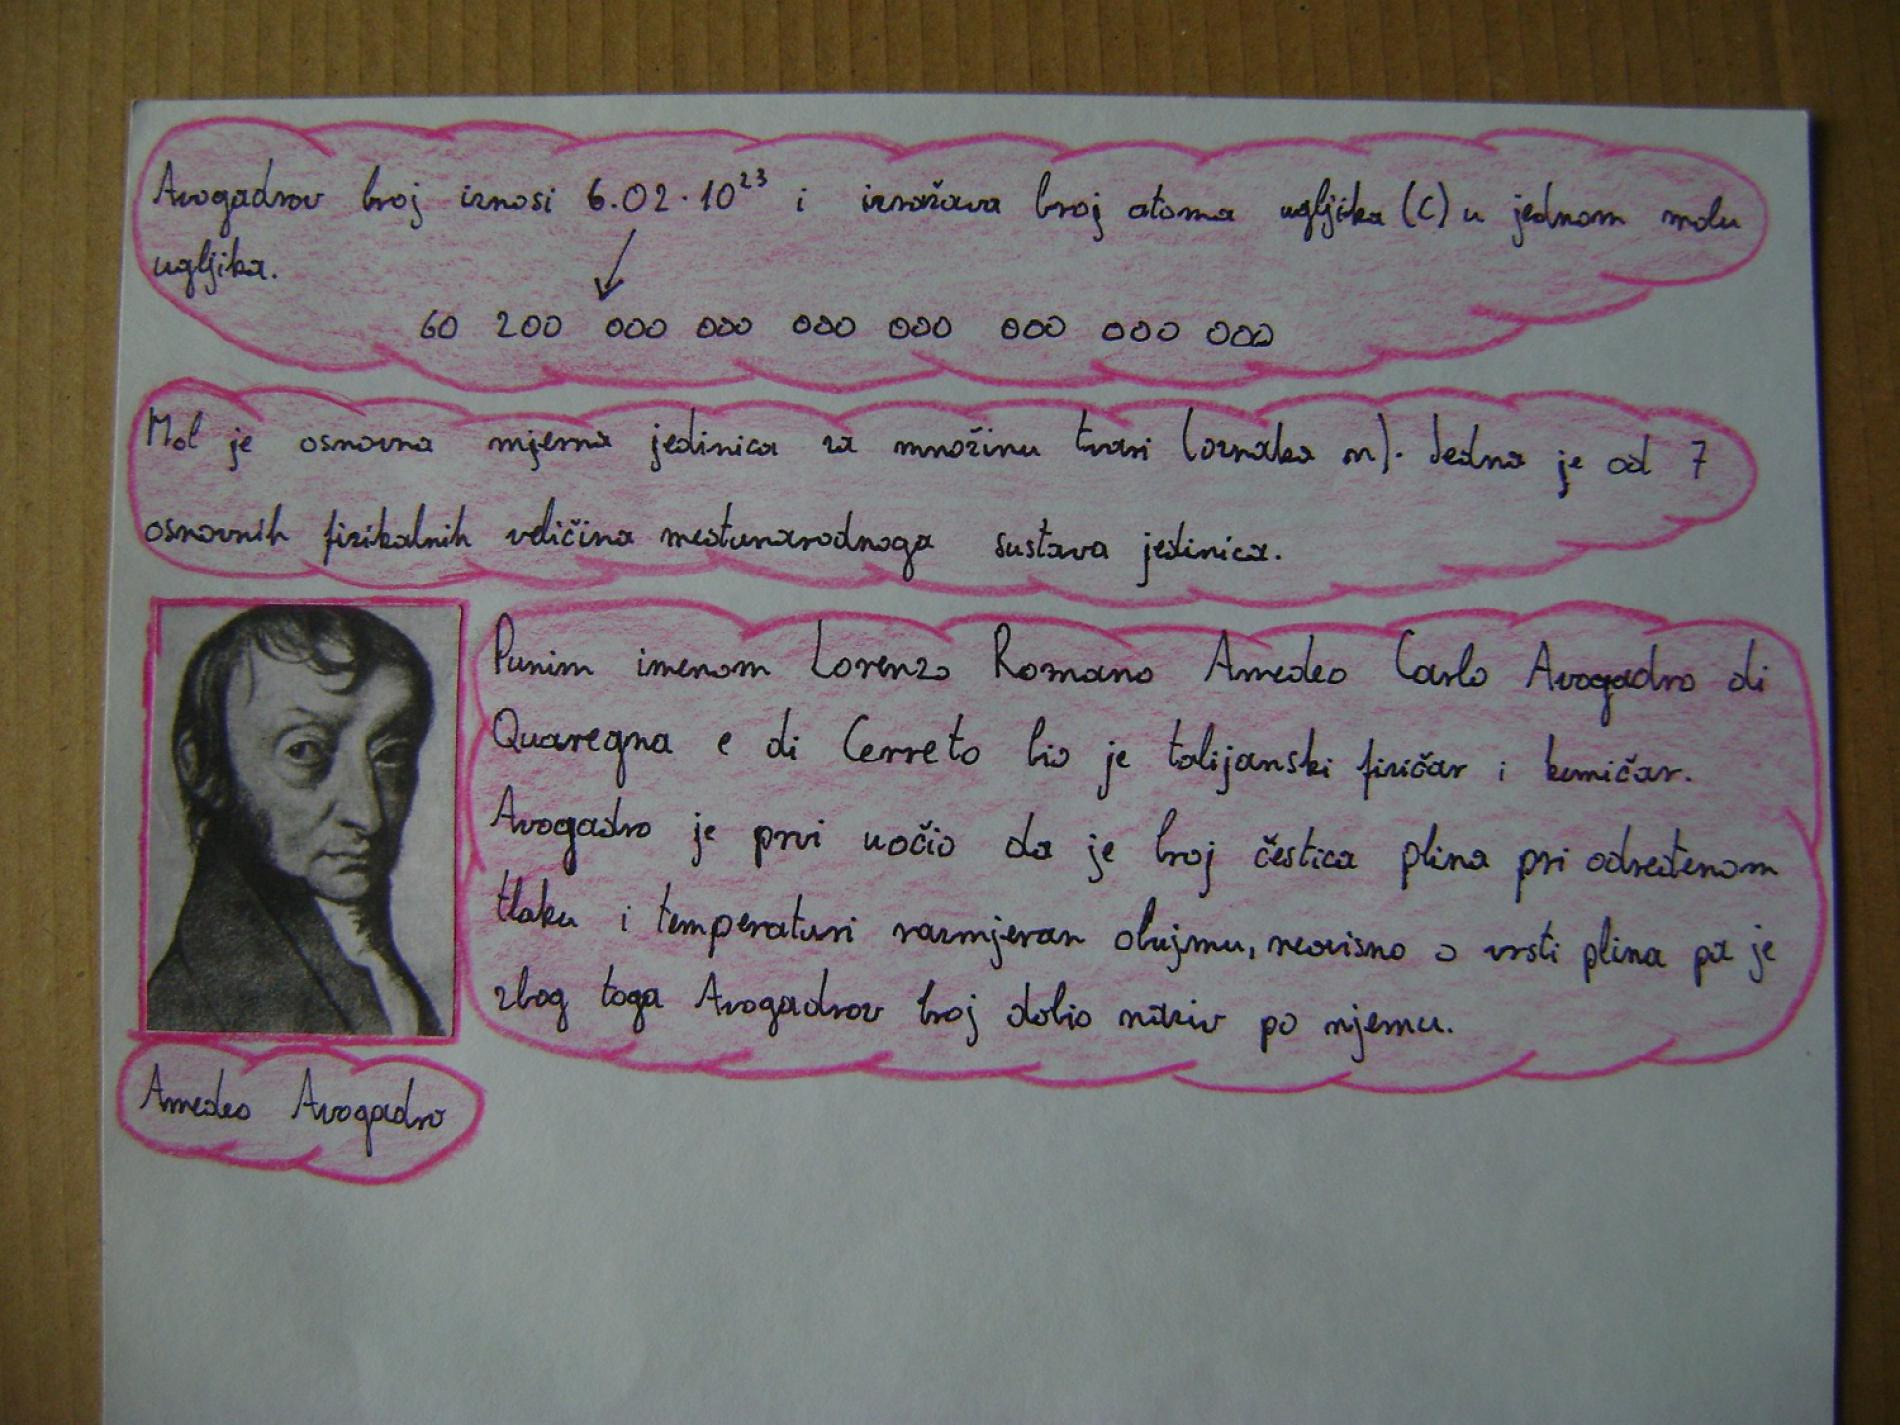 Avogadrov broj iznosi 6.02 · 10²³ i izražava broj atoma ugljika (C) u jednom molu
ugljika.
60 200 000 000 000 000 000 000 000
Mol je osnovna mjerna jedinica za množinu tvari (oznaka n). Jedna je od 7
osnovnih fizikalnih veličina međunarodnoga sustava jedinica.
Punim imenom Lorenzo Romano Amedeo Carlo Avogadro di
Quaregna e di Cerreto bio je talijanski fizičar i kemičar.
Avogadro je prvi uočio da je broj čestica plina pri određenom
tlaku i temperaturi razmjeran obujmu, neovisno o vrsti plina pa je
zbog toga Avogadrov broj dobio naziv po njemu.
Amedeo Avogadro